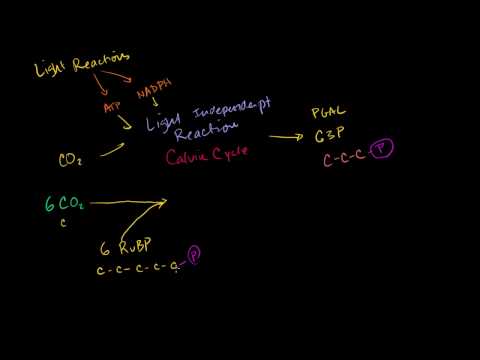 Light Reactions
ATP
NADPH
Light Independent
Reaction
Calvin Cycle
CO2
PGAL
G3P
C-C-C-P
6 CO2
C
6 RuBP
C-C-C-C-C-P